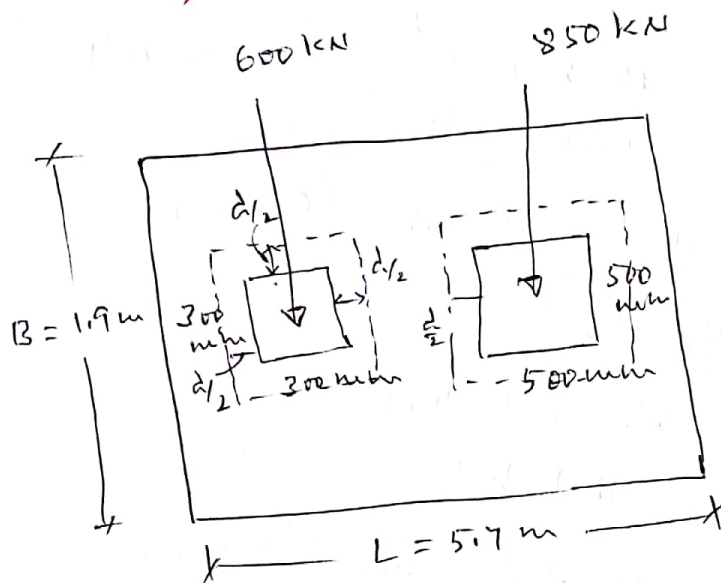 600 kN
850 kN
d/2
d/2
B = 1.9 m
300
mm
d/2
500
mm
d/2
300 mm
500 mm
L = 5.7 m